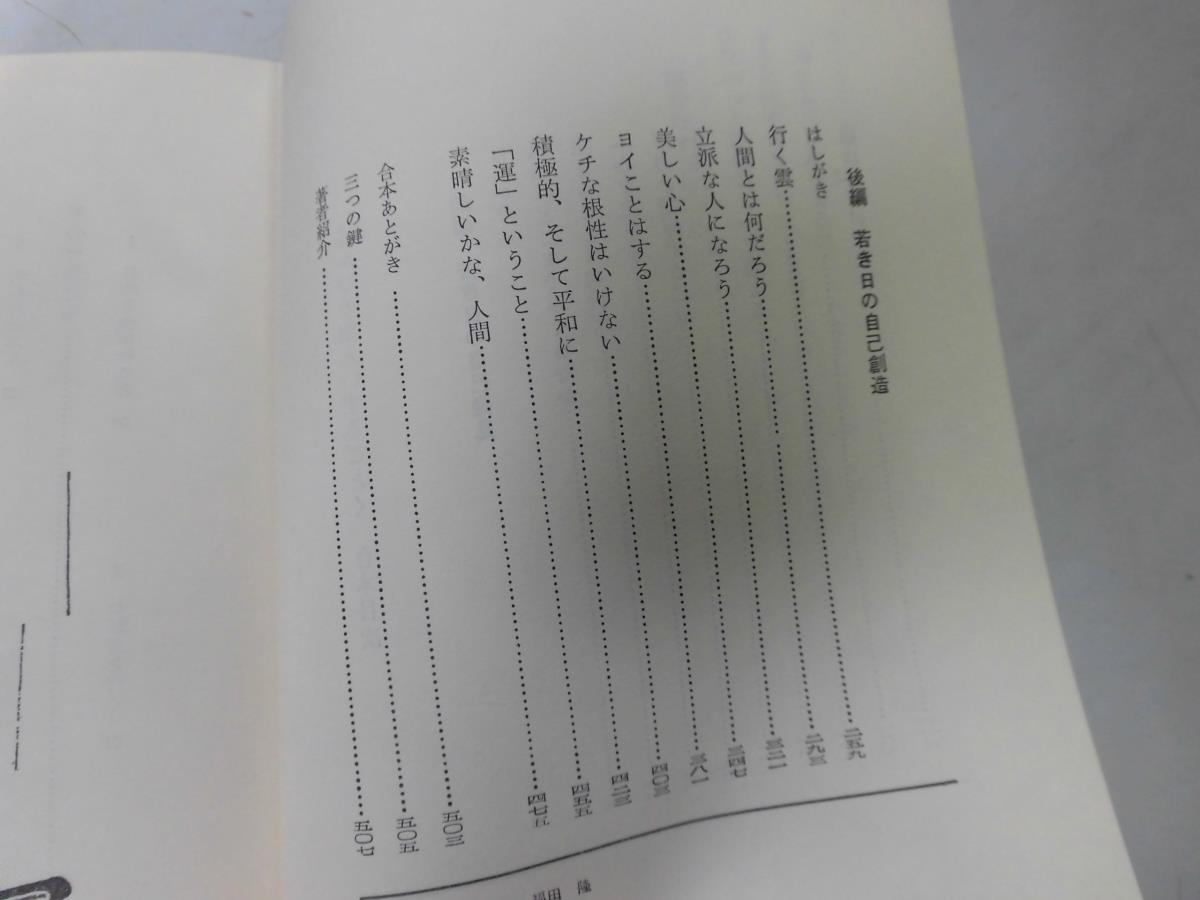 後編 若き日の自己創造
はしがき
行く雲……二五九
人間とは何だろう……二九三
立派な人になろう……三二一
美しい心……三四七
ヨイことはする……三八一
ケチな根性はいけない……四〇三
積極的、そして平和に……四二三
「運」ということ……四五五
素晴しいかな、人間……四七五
合本あとがき……五〇三
三つの鍵……五〇五
著者紹介……五〇七
田 隆